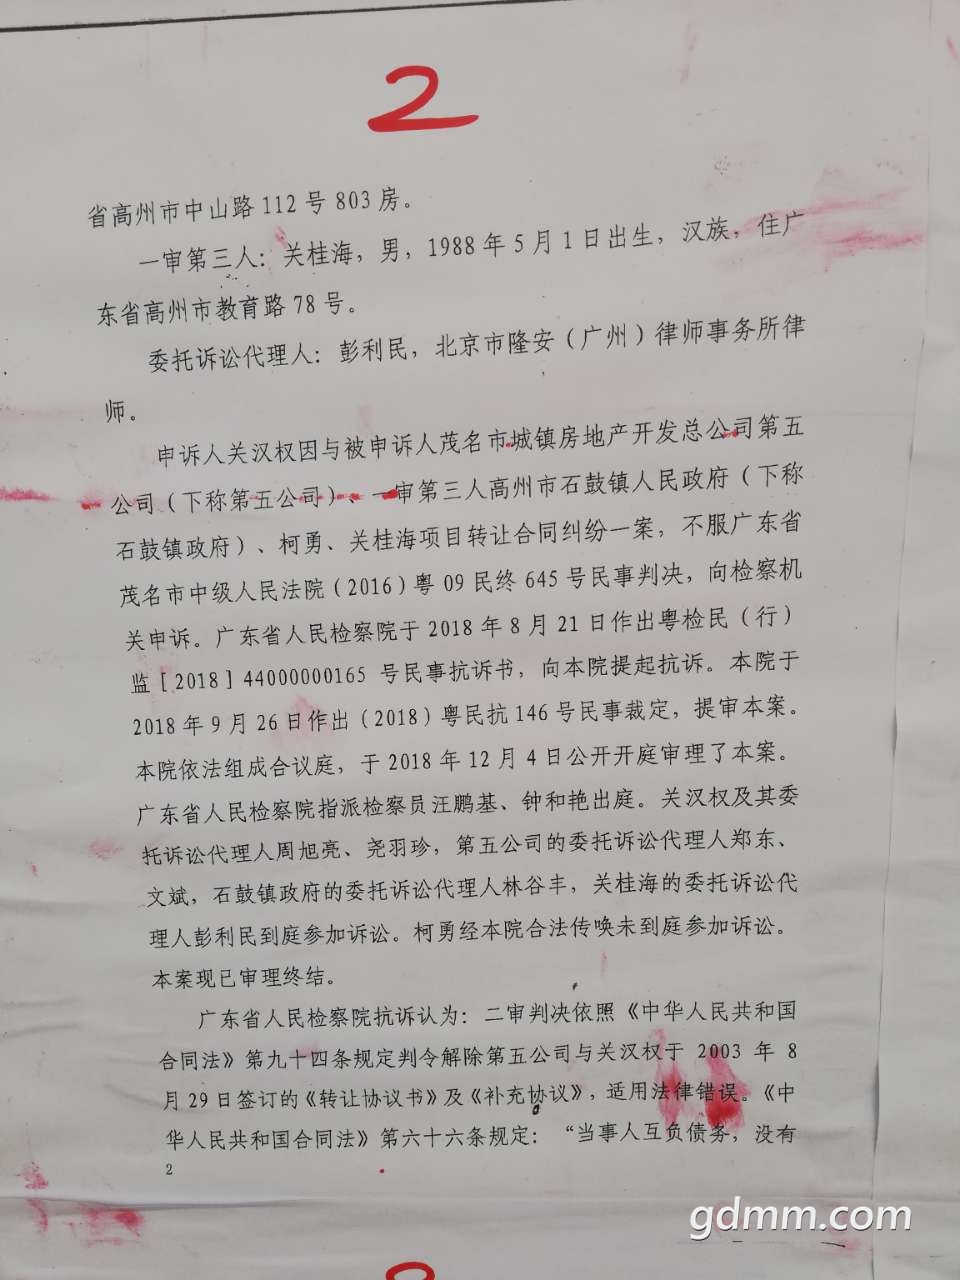 2
省高州市中山路 112 号 803 房。
一审第三人：关桂海，男，1988 年 5 月 1 日出生，汉族，住广
东省高州市教育路 78 号。
委托诉讼代理人：彭利民，北京市隆安（广州）律师事务所律
师。
申诉人关汉权因与被申诉人茂名市城镇房地产开发总公司第五
公司（下称第五公司）、一审第三人高州市石鼓镇人民政府（下称
石鼓镇政府）、柯勇、关桂海项目转让合同纠纷一案，不服广东省
茂名市中级人民法院（2016）粤 09 民终 645 号民事判决，向检察机
关申诉。广东省人民检察院于 2018 年 8 月 21 日作出粤检民（行）
监［2018］44000000165 号民事抗诉书，向本院提起抗诉。本院于
2018 年 9 月 26 日作出（2018）粤民抗 146 号民事裁定，提审本案。
本院依法组成合议庭，于 2018 年 12 月 4 日公开开庭审理了本案。
广东省人民检察院指派检察员汪鹏基、钟和艳出庭。关汉权及其委
托诉讼代理人周旭亮、尧羽珍，第五公司的委托诉讼代理人郑东、
文斌，石鼓镇政府的委托诉讼代理人林谷丰，关桂海的委托诉讼代
理人彭利民到庭参加诉讼。柯勇经本院合法传唤未到庭参加诉讼。
本案现已审理终结。
广东省人民检察院抗诉认为：二审判决依照《中华人民共和国
合同法》第九十四条规定判令解除第五公司与关汉权于 2003 年 8
月 29 日签订的《转让协议书》及《补充协议》，适用法律错误。《中
华人民共和国合同法》第六十六条规定：“当事人互负债务，没有
2
gdmm.com